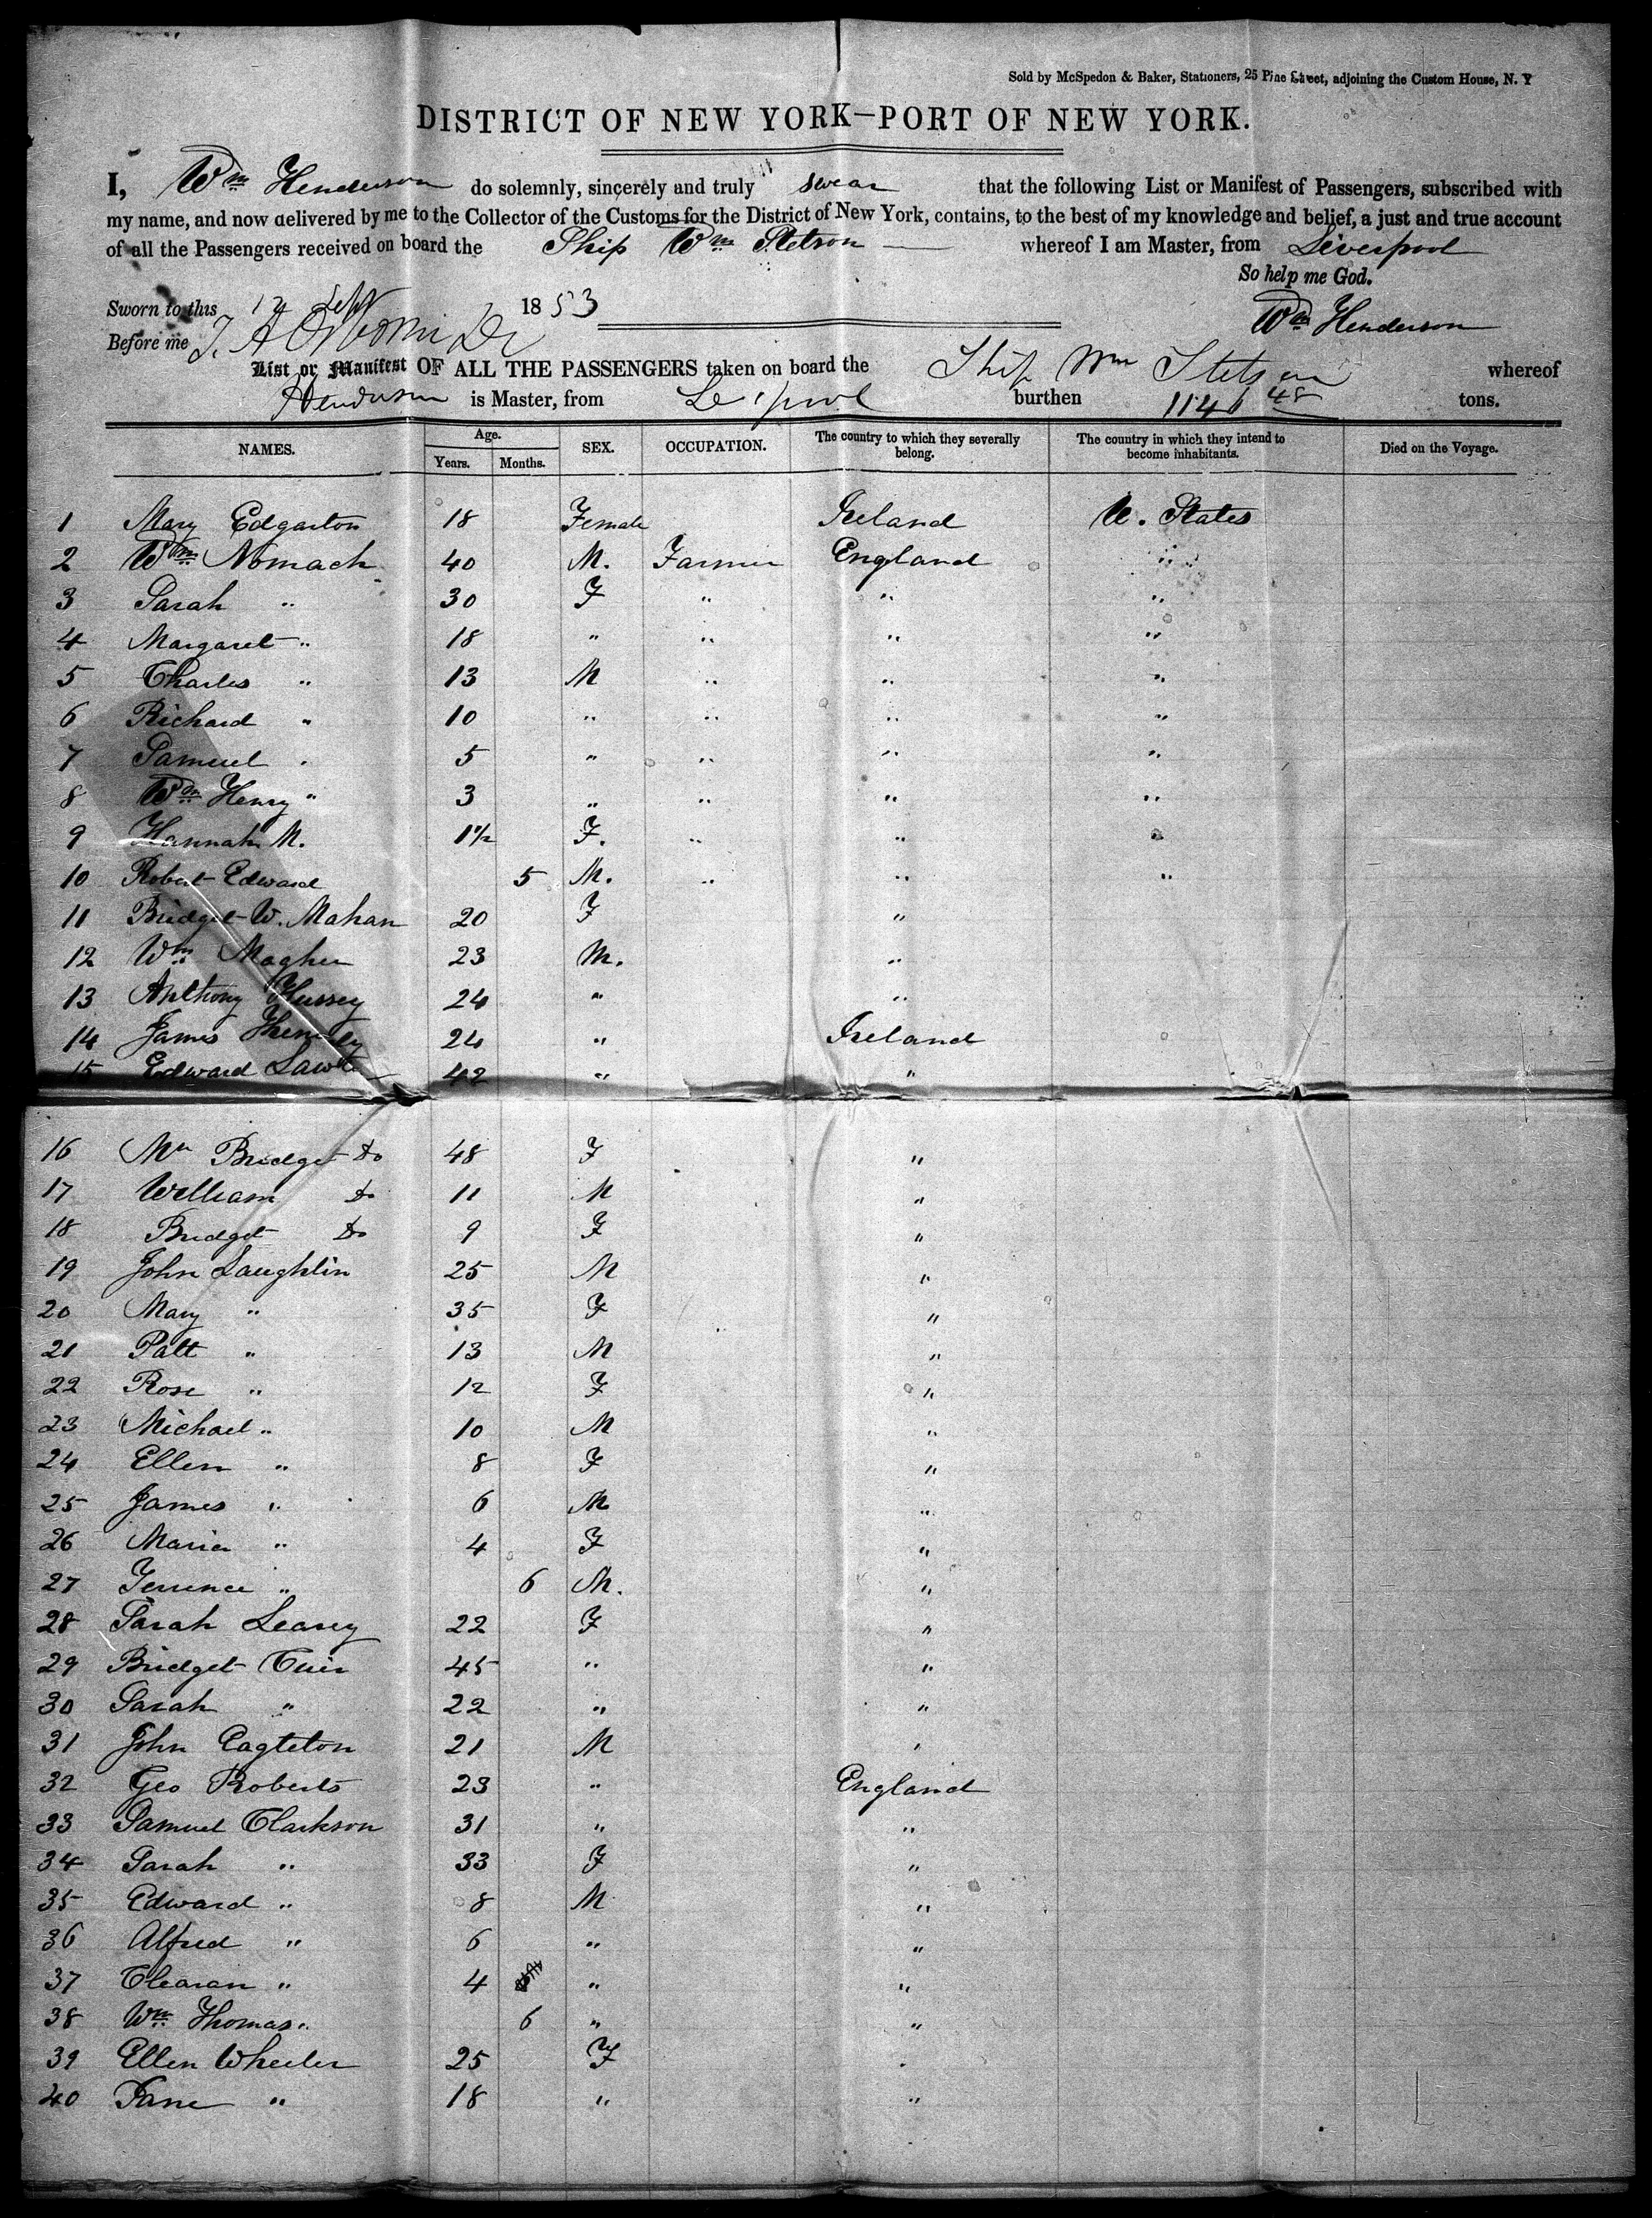 Sold by McSpedon & Baker, Stationers, 25 Pine Street, adjoining the Custom House, N. Y
DISTRICT OF NEW YORK—PORT OF NEW YORK.
I, Wm Henderson do solemnly, sincerely and truly swear that the following List or Manifest of Passengers, subscribed with
my name, and now delivered by me to the Collector of the Customs for the District of New York, contains, to the best of my knowledge and belief, a just and true account
of all the Passengers received on board the Ship Wm Stetson whereof I am Master, from Liverpool
So help me God.
Sworn to this Sept 1853
Wm Henderson
Before me
List or Manifest OF ALL THE PASSENGERS taken on board the Ship Wm Stetson whereof
Henderson is Master, from L'pool burthen 1146 48 tons.
NAMES. Age. Years. Months. SEX. OCCUPATION. The country to which they severally belong. The country in which they intend to become inhabitants. Died on the Voyage.
1 Mary Edgarton 18 Female Ireland U. States
2 Wm Nomach 40 M. Farmer England "
3 Sarah " 30 F " " "
4 Margaret " 18 " " " "
5 Charles " 13 M " " "
6 Richard " 10 " " " "
7 Samuel " 5 " " " "
8 Wm Henry " 3 " " " "
9 Hannah M. 1½ F. " " "
10 Robert Edward 5 M. " " "
11 Bridget W. Mahan 20 F "
12 Wm Magher 23 M. "
13 Anthony Hussey 24 " "
14 James 24 " Ireland
15 Edward 42 " "
16 Mrs Bridget Do 48 F "
17 William Do 11 M "
18 Bridget Do 9 F "
19 John Laughlin 25 M "
20 Mary " 35 F "
21 Patt " 13 M "
22 Rose " 12 F "
23 Michael " 10 M "
24 Ellen " 8 F "
25 James " 6 M "
26 Maria " 4 F "
27 Terrence " 6 M. "
28 Sarah Leary 22 F "
29 Bridget 45 " "
30 Sarah " 22 " "
31 John Cagteton 21 M "
32 Geo Roberts 23 " England
33 Samuel Clarkson 31 " "
34 Sarah " 33 F "
35 Edward " 8 M "
36 Alfred " 6 " "
37 Clearan " 4 " "
38 Wm Thomas " 6 " "
39 Ellen Wheeler 25 F "
40 Jane " 18 " "